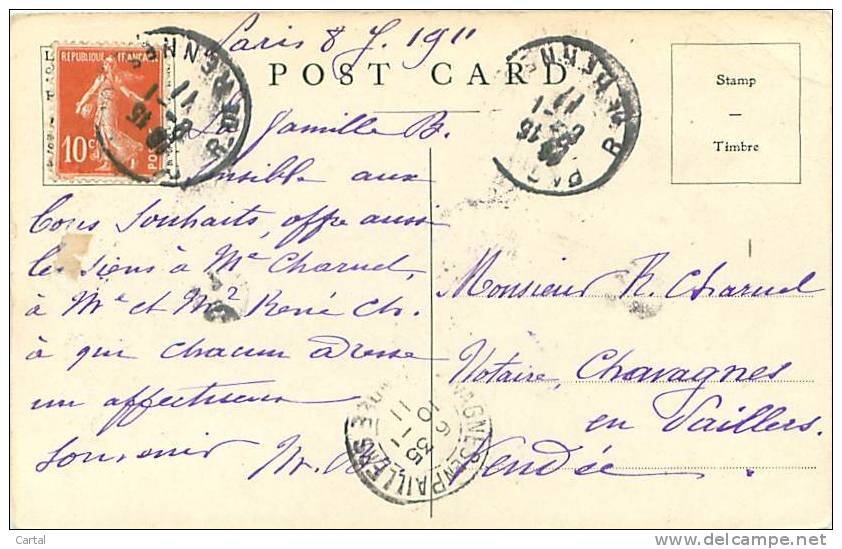 Paris 8 J. 1911
POST CARD
REPUBLIQUE FRANÇAISE
10 c
POSTES
Stamp
–
Timbre
La famille B.
sensible aux
bons souhaits, offre aussi
les siens à Me Charuel,
à Mr et Me René Ch.
à qui chacun adresse
un affectueux
souvenir
Monsieur R. Charuel
Notaire, Chavagnes
en Paillers.
Vendée
R. DE RENNES
R. DE RENNES
CHAVAGNES EN PAILLERS
Cartal
www.delcampe.net